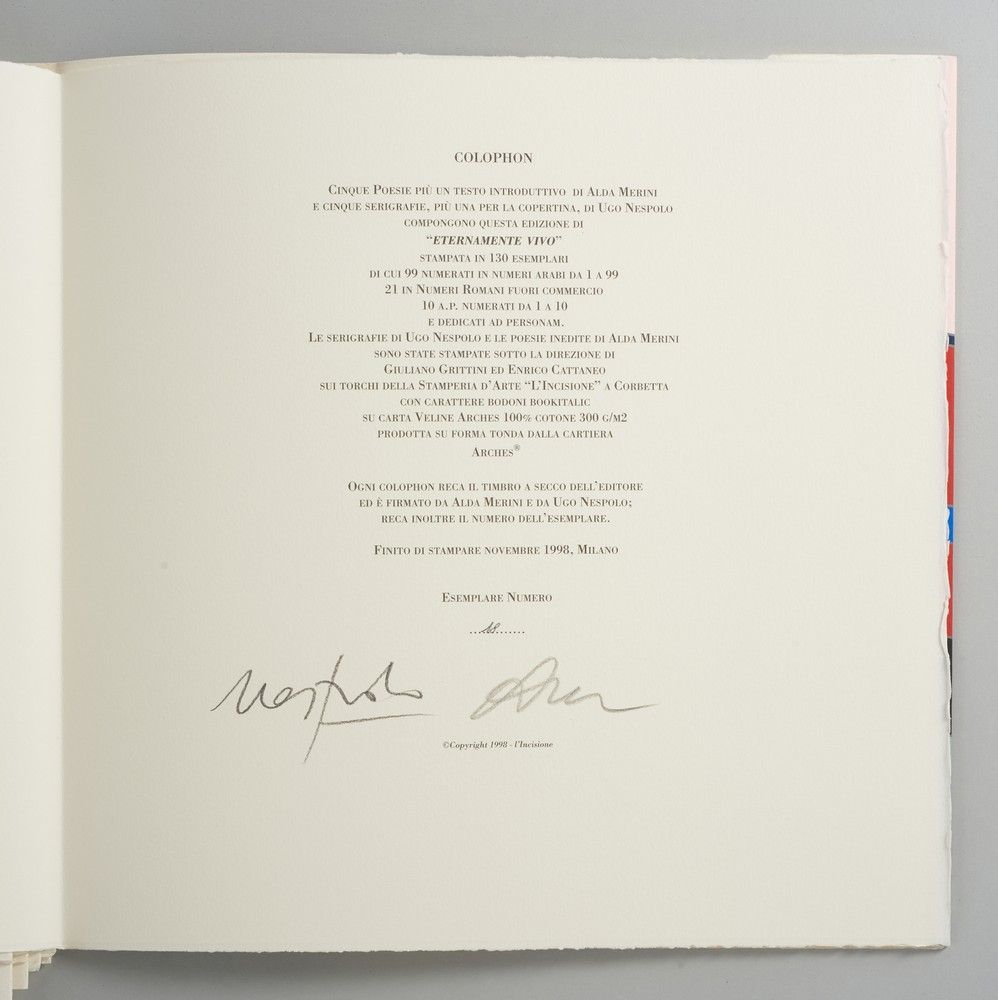 COLOPHON
CINQUE POESIE PIÙ UN TESTO INTRODUTTIVO DI ALDA MERINI
E CINQUE SERIGRAFIE, PIÙ UNA PER LA COPERTINA, DI UGO NESPOLO
COMPONGONO QUESTA EDIZIONE DI
“ETERNAMENTE VIVO”
STAMPATA IN 130 ESEMPLARI
DI CUI 99 NUMERATI IN NUMERI ARABI DA 1 A 99
21 IN NUMERI ROMANI FUORI COMMERCIO
10 A.P. NUMERATI DA 1 A 10
E DEDICATI AD PERSONAM.
LE SERIGRAFIE DI UGO NESPOLO E LE POESIE INEDITE DI ALDA MERINI
SONO STATE STAMPATE SOTTO LA DIREZIONE DI
GIULIANO GRITTINI ED ENRICO CATTANEO
SUI TORCHI DELLA STAMPERIA D’ARTE “L’INCISIONE” A CORBETTA
CON CARATTERE BODONI BOOKITALIC
SU CARTA VELINE ARCHES 100% COTONE 300 G/M2
PRODOTTA SU FORMA TONDA DALLA CARTIERA
ARCHES®
OGNI COLOPHON RECA IL TIMBRO A SECCO DELL’EDITORE
ED È FIRMATO DA ALDA MERINI E DA UGO NESPOLO;
RECA INOLTRE IL NUMERO DELL’ESEMPLARE.
FINITO DI STAMPARE NOVEMBRE 1998, MILANO
ESEMPLARE NUMERO
Nespolo
©Copyright 1998 - l’Incisione